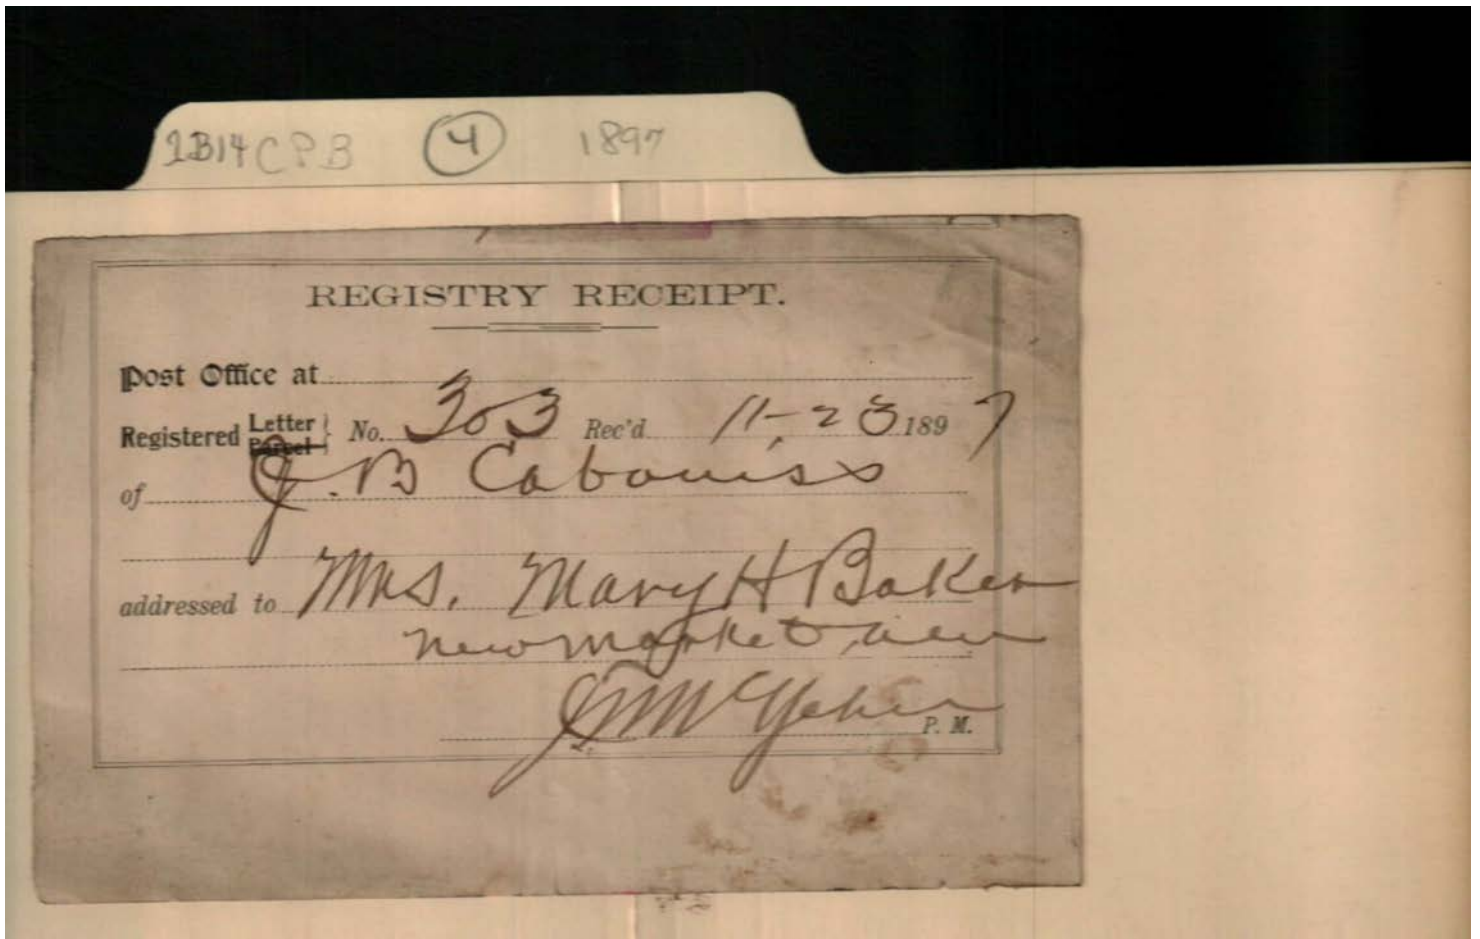 2B14 CPB 4 1897
REGISTRY RECEIPT.
Post Office at
Registered Letter Parcel } No. 303 Rec'd 11-23 1897
of J. B Cabaniss
addressed to Mrs. Mary H Baker
New Market, Ala
P. M.